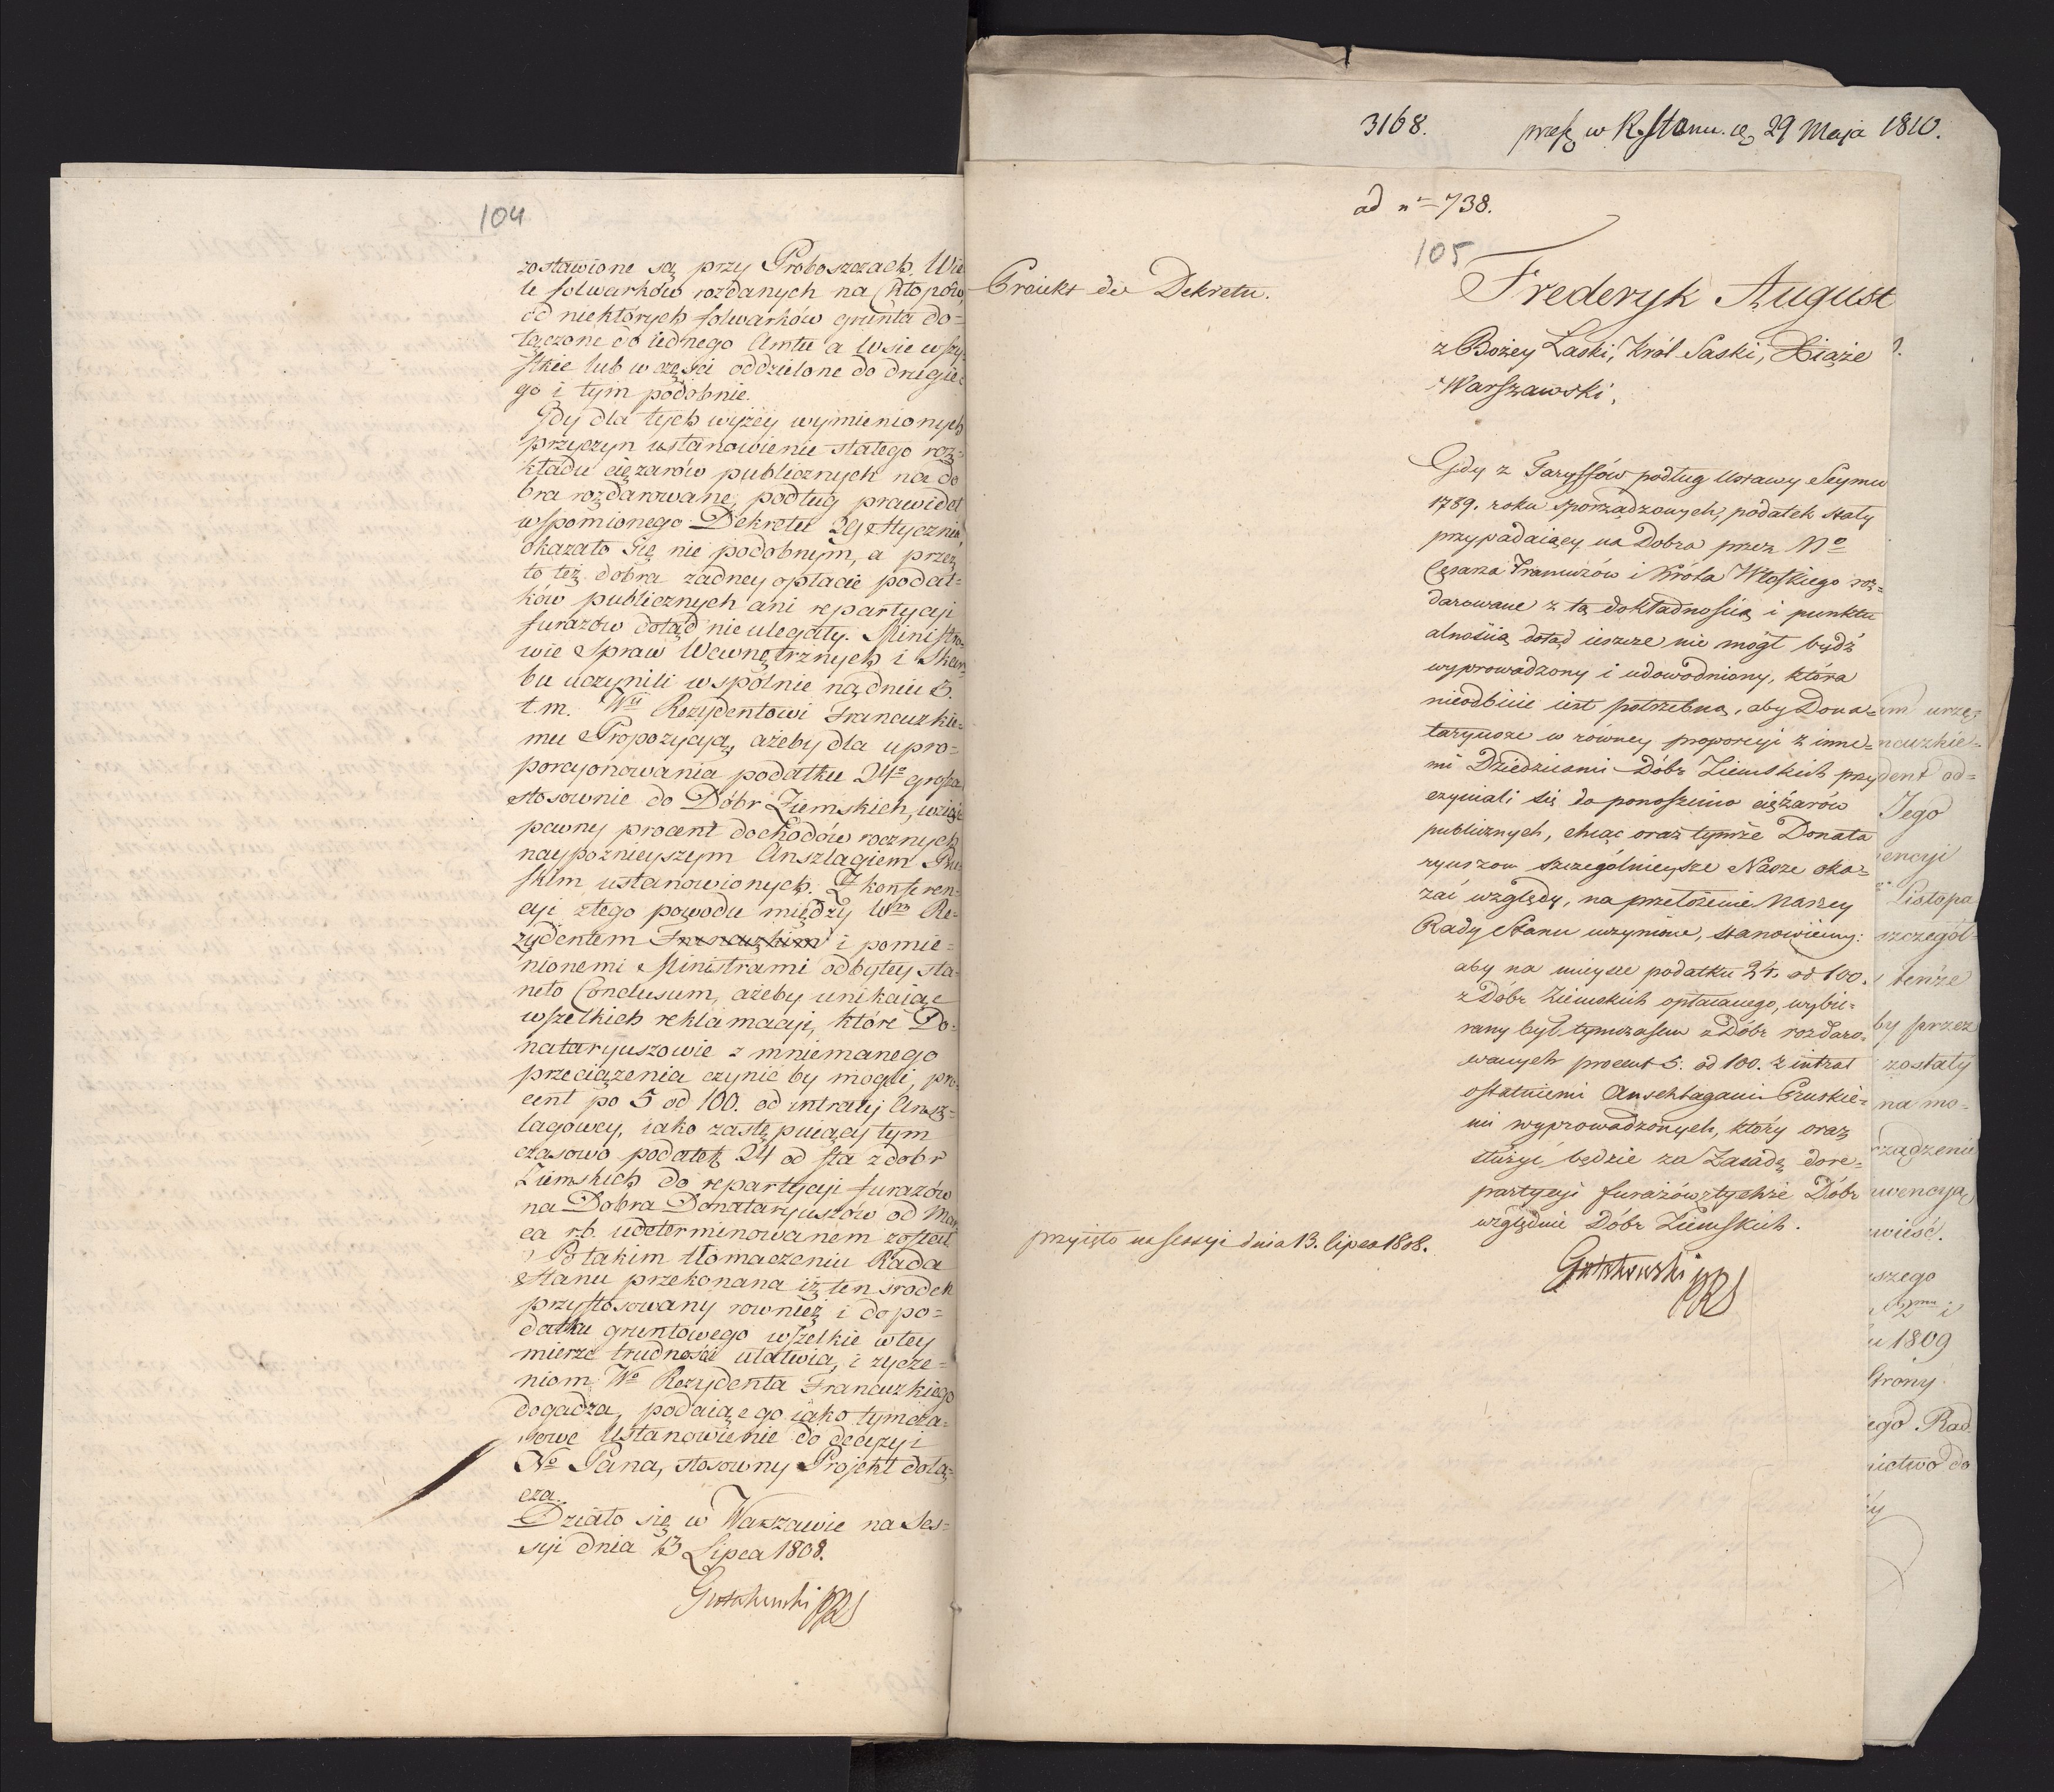 104
zostawione są przy Proboszczach. Wie
le folwarków rozdanych na Chłopów,
od niektórych folwarków grunta do=
łączone do iednego Amtu a Wsie wszy-
stkie lub w części oddzielone do drugie=
go i tym podobnie.
Gdy dla tych wyżey wymienionych
przyczyn ustanowienie stałego roz=
kładu ciężarów publicznych na do
bra rozdarowane, podług prawideł
wspomionego Dekretu 29 Stycznia,
okazało się nie podobnym, a przez
to też dobra żadney opłacie podat=
ków publicznych ani repartycyi
furażów dotąd nie uległy. Ministro-
wie Spraw Wewnętrznych i Skar
bu uczynili wspólnie na dniu 5.
t. m. Rezydentowi Francuzkie=
mu Propozycyą, ażeby dla upro=
porcyonowania podatku 24º grosza
stosownie do Dóbr Ziemskich, wziąć
pewny procent dochodów rocznych
naypoznieyszym Anszlagiem Pru-
skim ustanowionych. Z konferen=
cyi z tego powodu między Re=
zydentem Francuzkim i pomie=
nionemi Ministrami odbytey sta=
neło Conclusum, ażeby unikaiąc
wszelkich reklamacyi, które Do=
nataryuszowie z mniemanego
przeciążenia czynić by mogli, pro
cent po 5 od 100. od intraty Ansz=
lagowey, iako zastępuiący tym
czasowo podatek 24 od sta z dobr
Ziemskich do repartycyi furażów
na Dobra Donataryuszów od Mar
ca r.b. udeterminowanem został.
Po takim tłomaczeniu Rada
Stanu przekonana iż ten środek
przystosowany rownież i do po=
datku gruntowego wszelkie w tey
mierze trudności ułatwia, i życze=
niom Rezydenta Francuzkiego
dogadza, podaiąc go iako tymcza=
sowe Ustanowienie do decyzyi
Nº Pana, stosowny Projekt dołą=
cza.
Działo się w Warszawie na Ses=
syi dnia 13 Lipca 1808.
Gutakowski PRS
3168. w R. Stanu. 29 Maja 1810.
ad nº 738.
105
Proiekt do Dekretu.
Frederyk August
z Bożey Łaski, Król Saski, Xiąże
Warszawski,
Gdy z Taryffów podług Ustawy Seymu
1789. roku sporządzonych, podatek stały
przypadaiący na Dobra przez Nº
Cesarza Francuzów i Króla Włoskiego roz=
darowane z tą dokładnością i punktu
alnością dotąd ieszcze nie mógł bydź
wyprowadzony i udowodniony, która
nieodbicie iest potrzebną, aby Dona=
taryusze w równey proporcyi z inne=
mi Dziedzicami Dóbr Ziemskich przy
czyniali się do ponoszenia ciężarów
publicznych, chcąc oraz tymże Donata
ryuszom szczególnieysze Nasze oka=
zać względy, na przełożenie Naszey
Rady Stanu uczynione, stanowiemy:
aby na mieysce podatku 24. od 100.
z Dóbr Ziemskich opłacanego, wybie=
rany był tymczasem z Dóbr rozdaro=
wanych procent 5. od 100. z intrat
ostatniemi Anschlagami Pruskie=
mi wyprowadzonych, który oraz
służyć będzie za Zasadę do re=
partycyi furażów z tychże Dóbr
względnie Dóbr Ziemskich.
przyięto na Sessyi dnia 13. lipca 1808.
Gutakowski PRS
urzę=
ncuzkie=
dent od=
Jego
encyi
Listopa
szczegól=
tenże
by przez
zostały
na mo=
rządzenie
wencyą,
wieść.
szego
i
1809
Strony
ego Rad
ictwo do